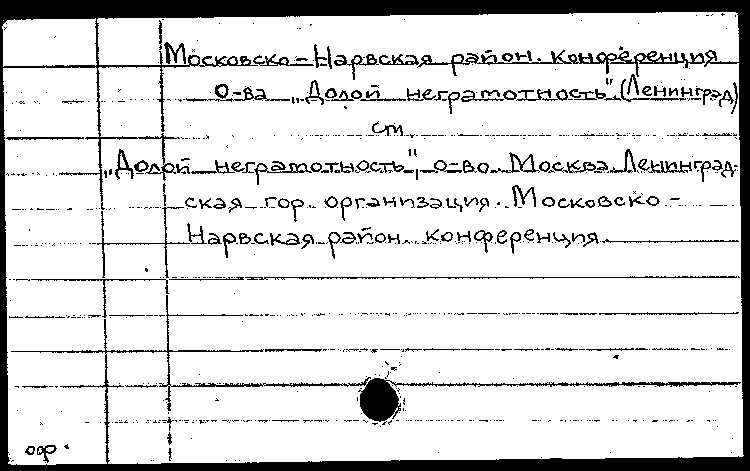 Московско-Нарвская район. конференция
О-ва „Долой неграмотность". (Ленинград)
см.
„Долой неграмотность", о-во. Москва. Ленинград-
ская гор. организация. Московско-
Нарвская район. конференция.